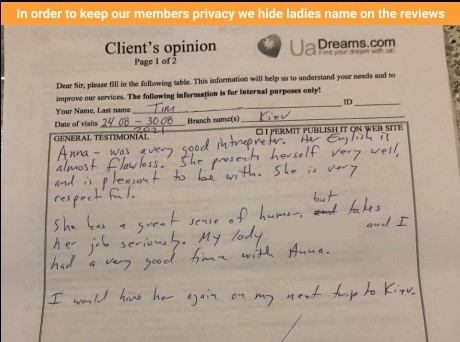 In order to keep our members privacy we hide ladies name on the reviews
Client's opinion
Page 1 of 2
UaDreams.com
Find your dream with us!
Dear Sir, please fill in the following table. This information will help us to understand your needs and to
improve our services. The following information is for internal purposes only!
Your Name, Last name Tim ID
Date of visits 24.08 - 30.08 Branch name(s) Kiev
2021
GENERAL TESTIMONIAL I PERMIT PUBLISH IT ON WEB SITE
Anna - was a very good intrepreter. Her English is
almost flawless. She presents herself very well,
and is pleasant to be with. She is very
respectful.
She has a great sense of humor, but takes
her job seriously. My lady and I
had a very good time with Anna.
I would hire her again on my next trip to Kiev.